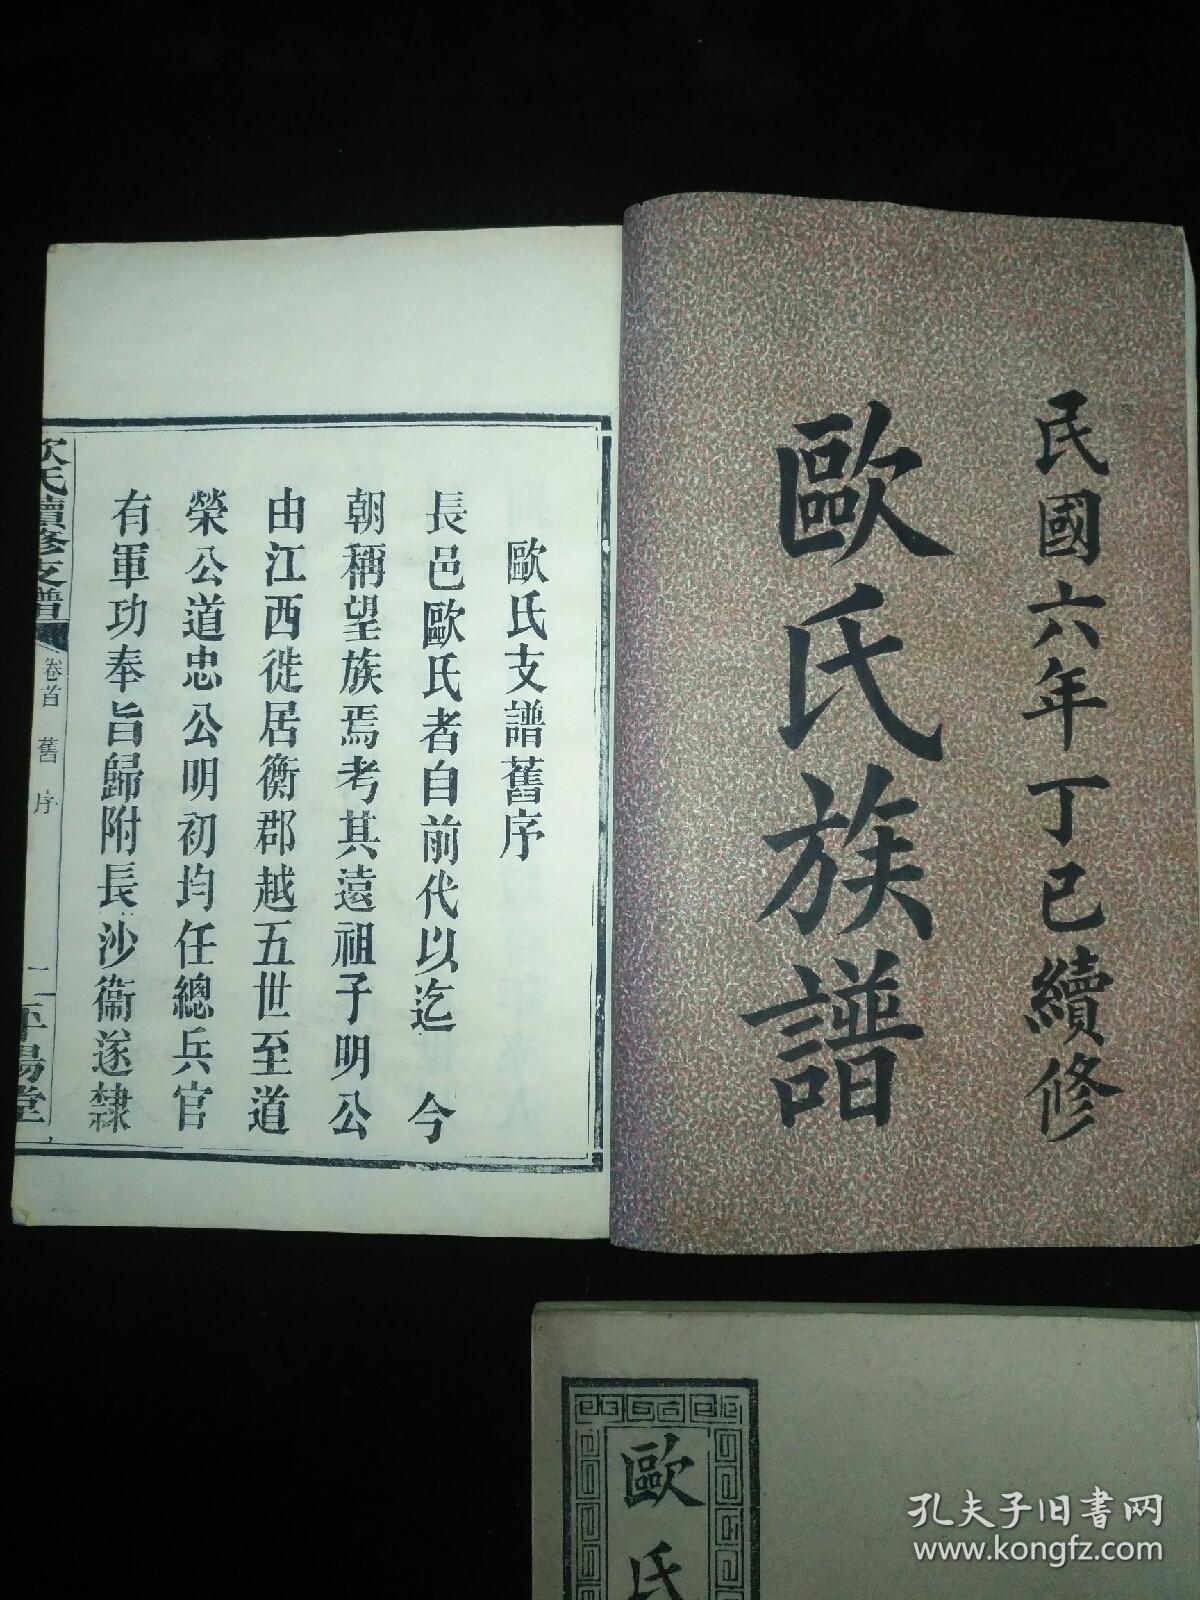 民國六年丁巳續修
歐氏族譜
歐氏支譜舊序
長邑歐氏者自前代以迄 今
朝稱望族焉考其遠祖子明公
由江西徙居衡郡越五世至道
榮公道忠公明初均任總兵官
有軍功奉旨歸附長沙衞遂隸
氏續修支譜 卷首 舊序 一 平陽堂
歐氏
孔夫子旧书网
www.kongfz.com